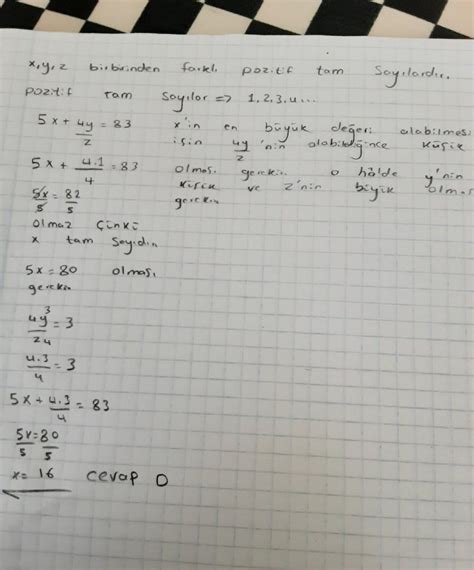 x,y,z birbirinden farklı pozitif tam sayılardır.
pozitif tam sayılar => 1,2,3,4...
5x + 4y/z = 83 x'in en büyük değeri alabilmesi
için 4y/z 'nin olabildiğince küçük
5x + 4.1/4 = 83 olması gerekir. o hâlde y'nin
küçük ve z'nin büyük olması
5x/5 = 82/5 gerekir
olmaz çünkü
x tam sayıdır.
5x = 80 olması
gerekir
4y/z = 3
4.3/4 = 3
5x + 4.3/4 = 83
5x/5 = 80/5
x = 16 cevap D